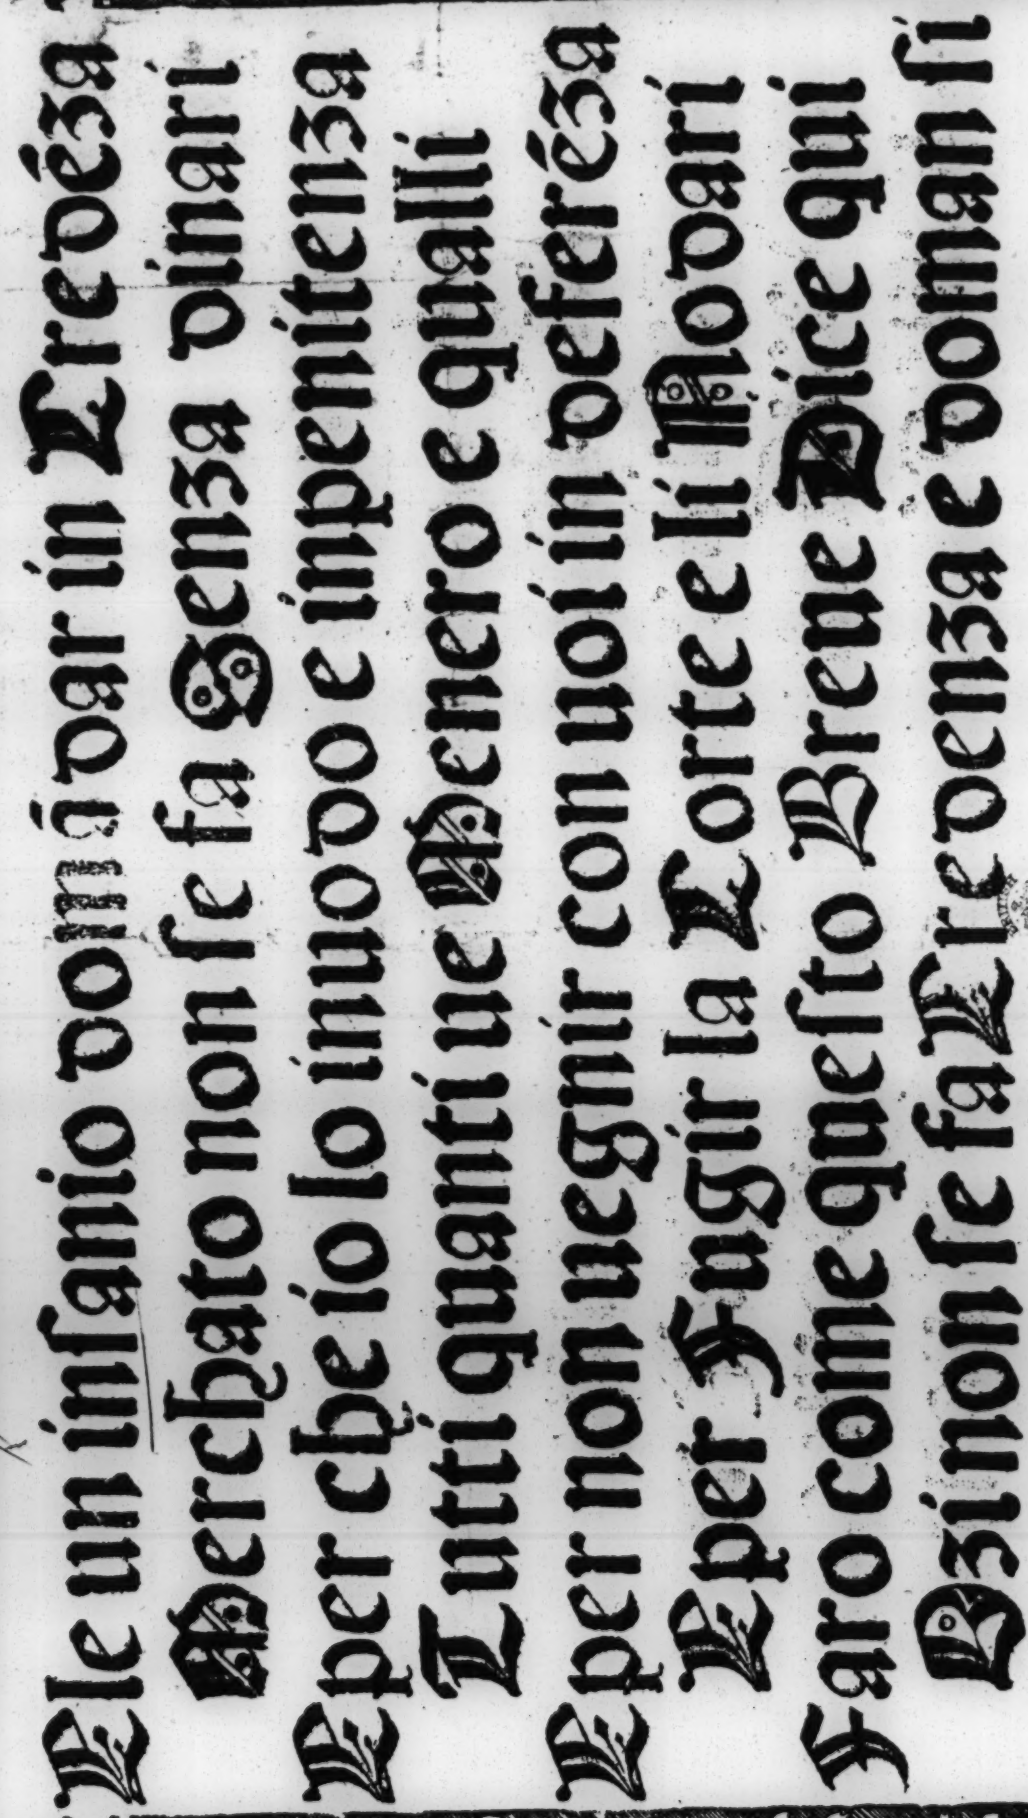 Ele un inſanio domādar in Credēza
Merchato non ſe fa Senza dinari
E per che io lo inuodo e inpenitenza
Tutti quanti ue Menero e qualli
E per non uegnir con uoi in deferēza
E per Fugir la Corte e li Nodari
Faro come queſto Breue Dice qui
Ozi non ſe fa Credenza e doman ſi